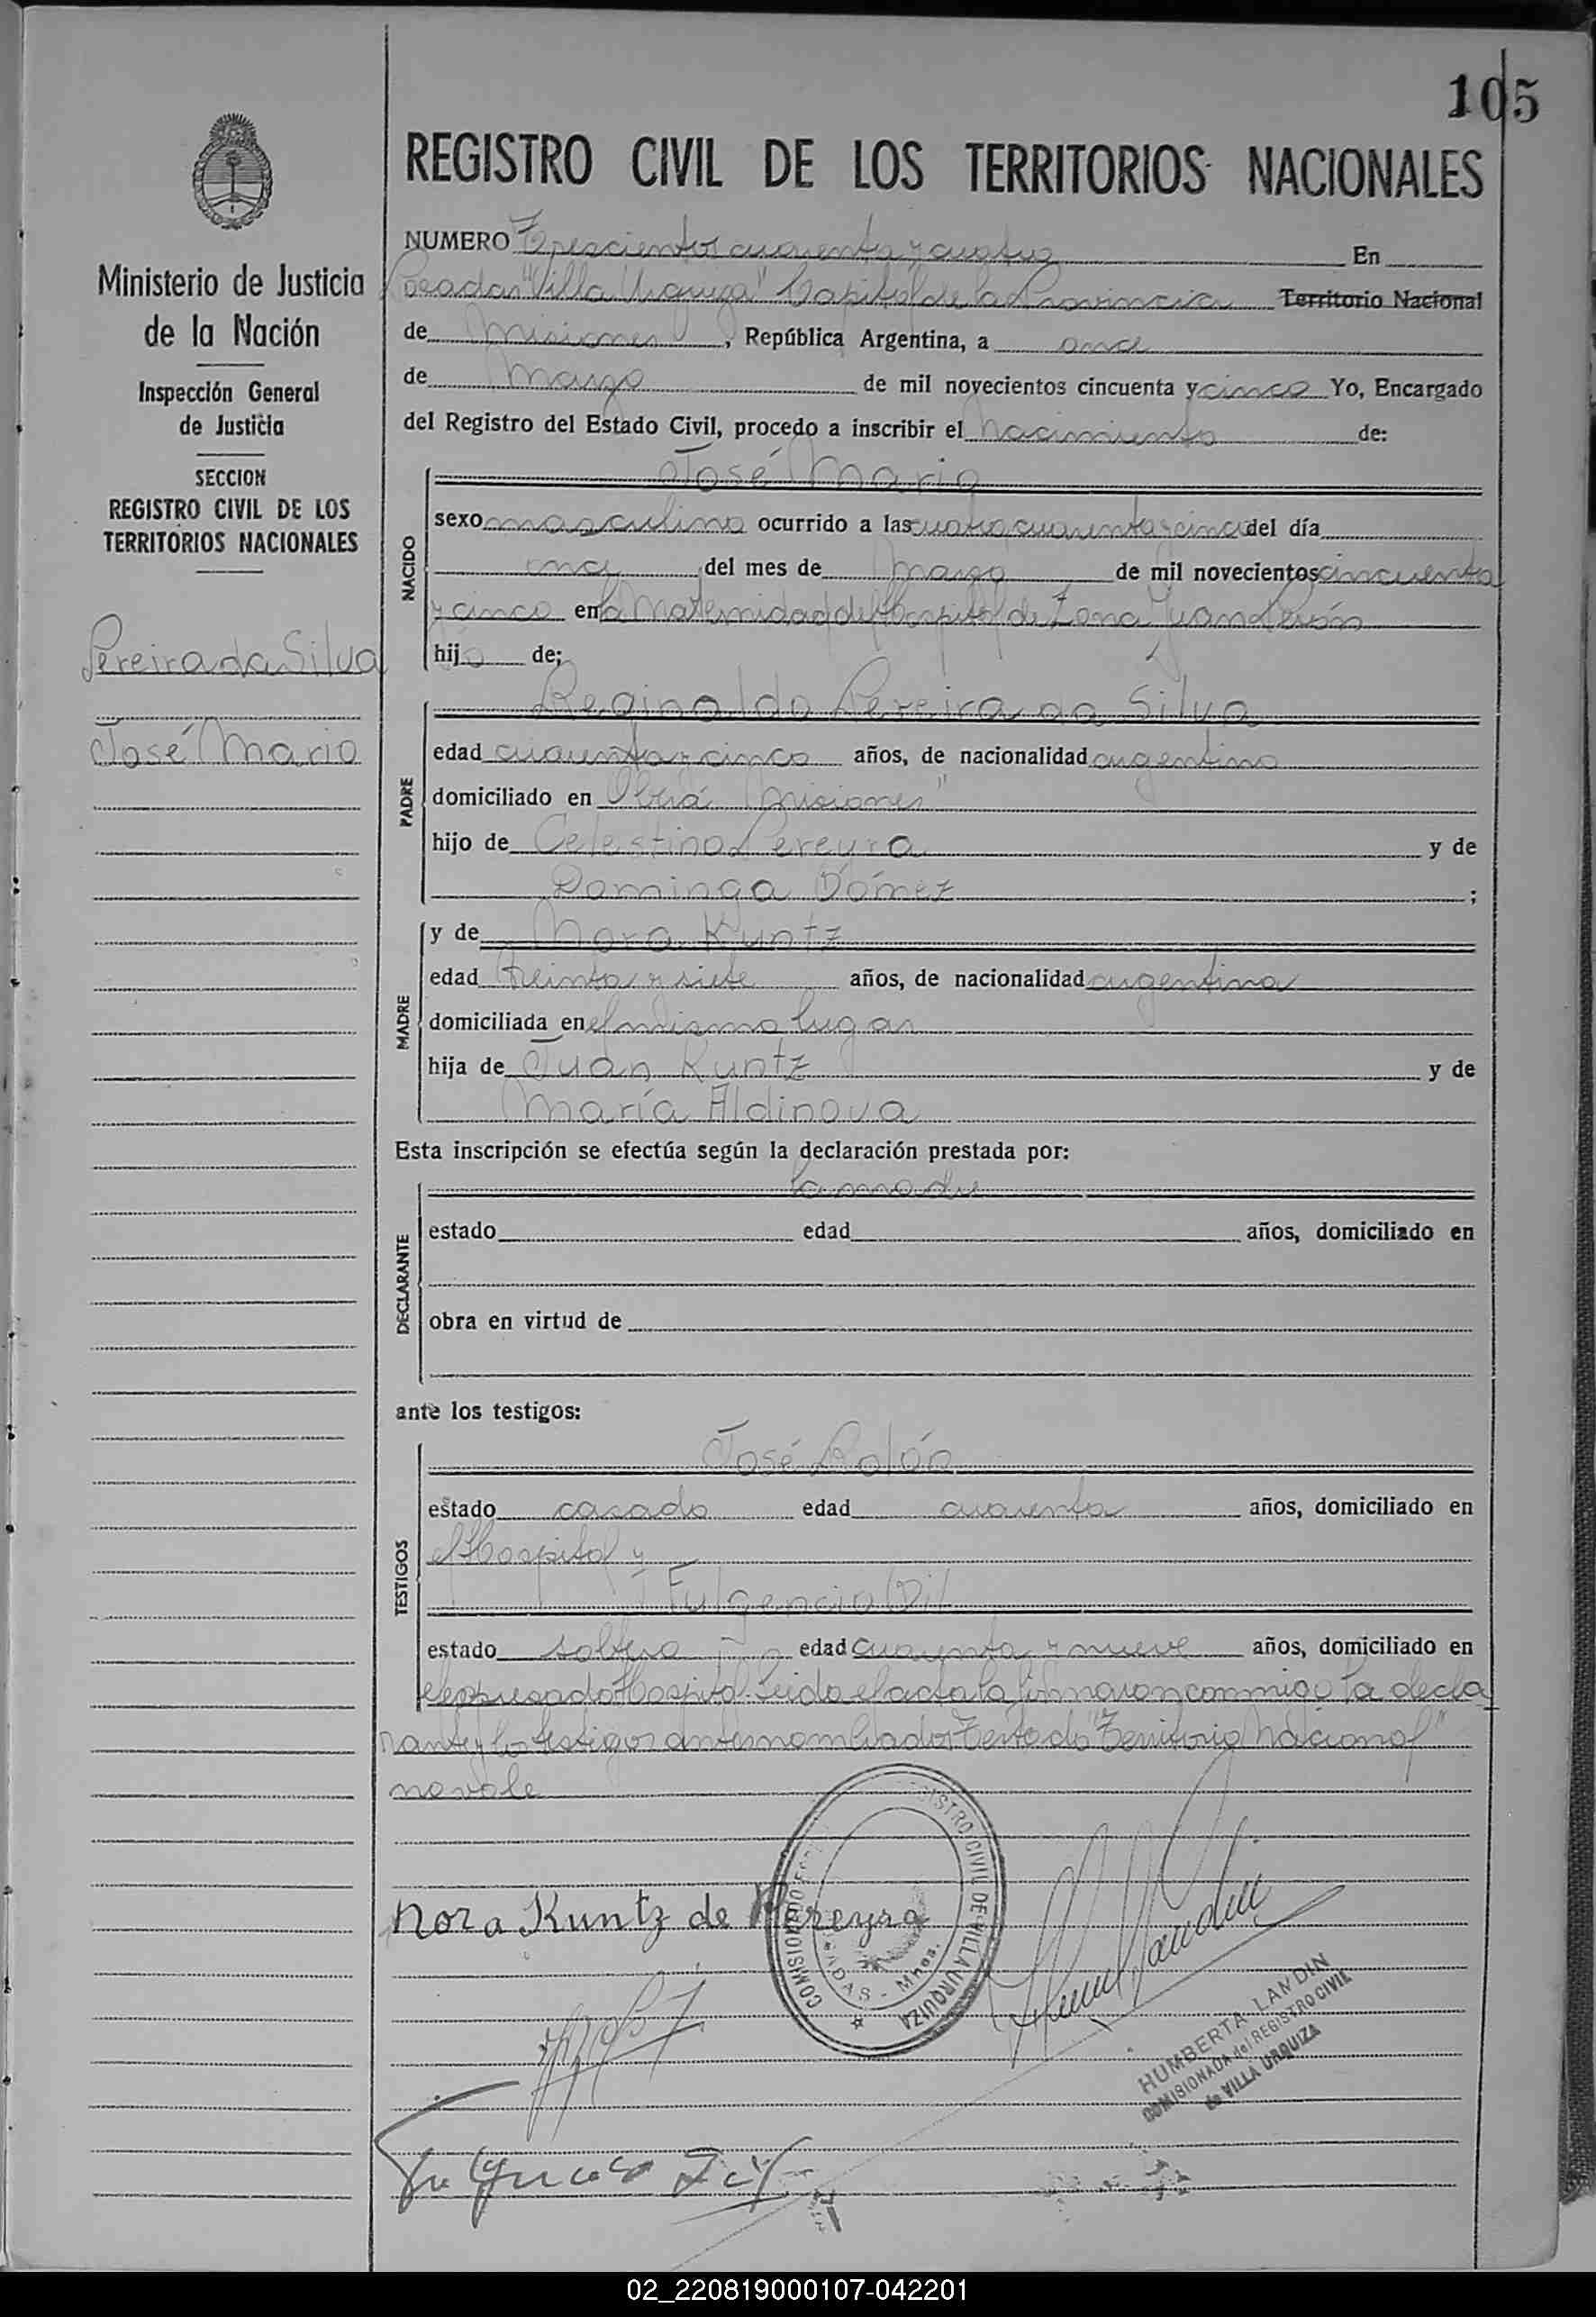 105
REGISTRO CIVIL DE LOS TERRITORIOS NACIONALES
Ministerio de Justicia
de la Nación
Inspección General
de Justicia
SECCION
REGISTRO CIVIL DE LOS
TERRITORIOS NACIONALES
Pereira da Silva
José Mario
NUMERO Trescientos cuarenta y cuatro En
Posadas "Villa Urquiza" Capital de la Provincia Territorio Nacional
de Misiones, República Argentina, a once
de Marzo de mil novecientos cincuenta y cinco Yo, Encargado
del Registro del Estado Civil, procedo a inscribir el nacimiento de:
NACIDO
José Mario
sexo masculino ocurrido a las cuatro cuarenta y cinco del día
once del mes de marzo de mil novecientos cincuenta
y cinco en la Maternidad del Hospital de Zona Juan Perón
hijo de;
PADRE
Reginaldo Pereira da Silva
edad cuarenta y cinco años, de nacionalidad argentino
domiciliado en Oberá "Misiones"
hijo de Celestino Pereyra y de
Dominga Gómez ;
MADRE
y de Nora Kuntz
edad treinta y siete años, de nacionalidad argentina
domiciliada en el mismo lugar
hija de Juan Kuntz y de
María Aldinova
Esta inscripción se efectúa según la declaración prestada por:
DECLARANTE
la madre
estado edad años, domiciliado en
obra en virtud de
ante los testigos:
TESTIGOS
José Rolón
estado casado edad cuarenta años, domiciliado en
el Hospital y
Fulgencio Gil
estado soltero edad cuarenta y nueve años, domiciliado en
el expresado Hospital. Leida el acta la firmaron conmigo la decla
rante y los testigos antes nombrados Testado "Territorio Nacional"
no vale
Nora Kuntz de Pereyra
COMISIONADO REGISTRO CIVIL DE VILLA URQUIZA
POSADAS - Mnes.
HUMBERTA LANDIN
COMISIONADA del REGISTRO CIVIL
de VILLA URQUIZA
Fulgencio Gil
02_220819000107-042201